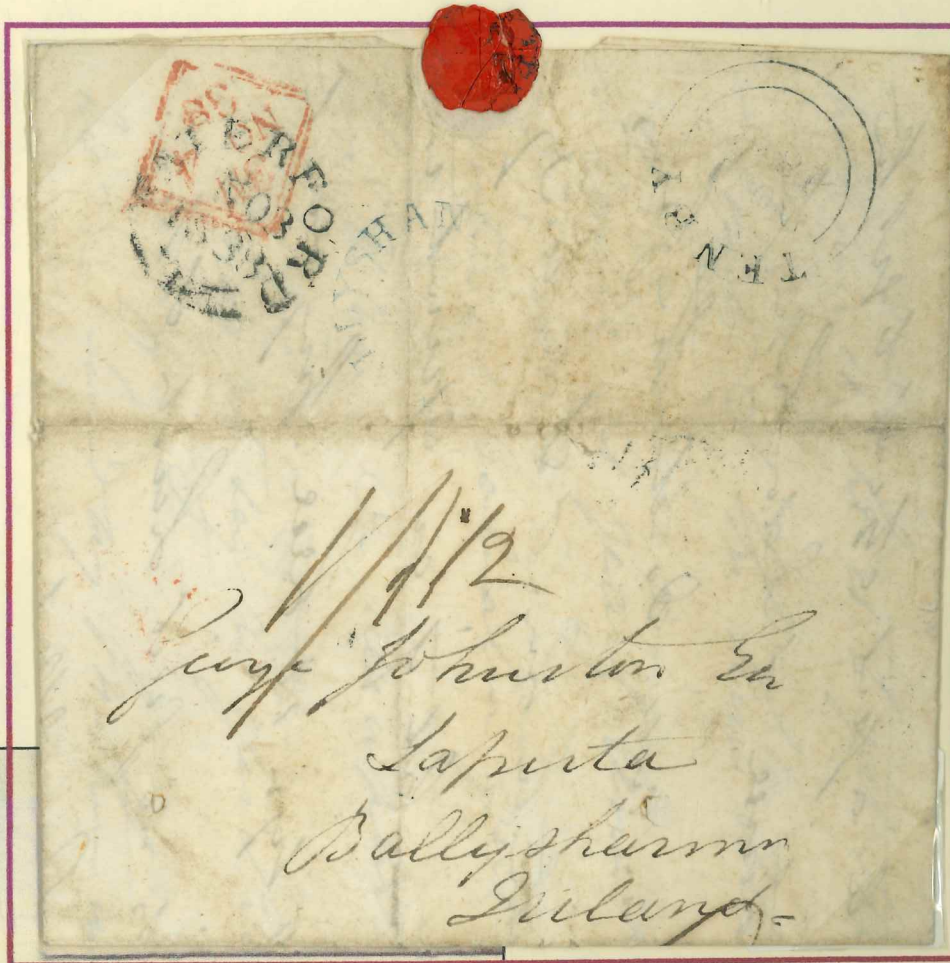 WATERFORD
NO 3
1838
TENBY
1/1 1/2
George Johnston Esq
Laputa
Ballyshannon
Ireland